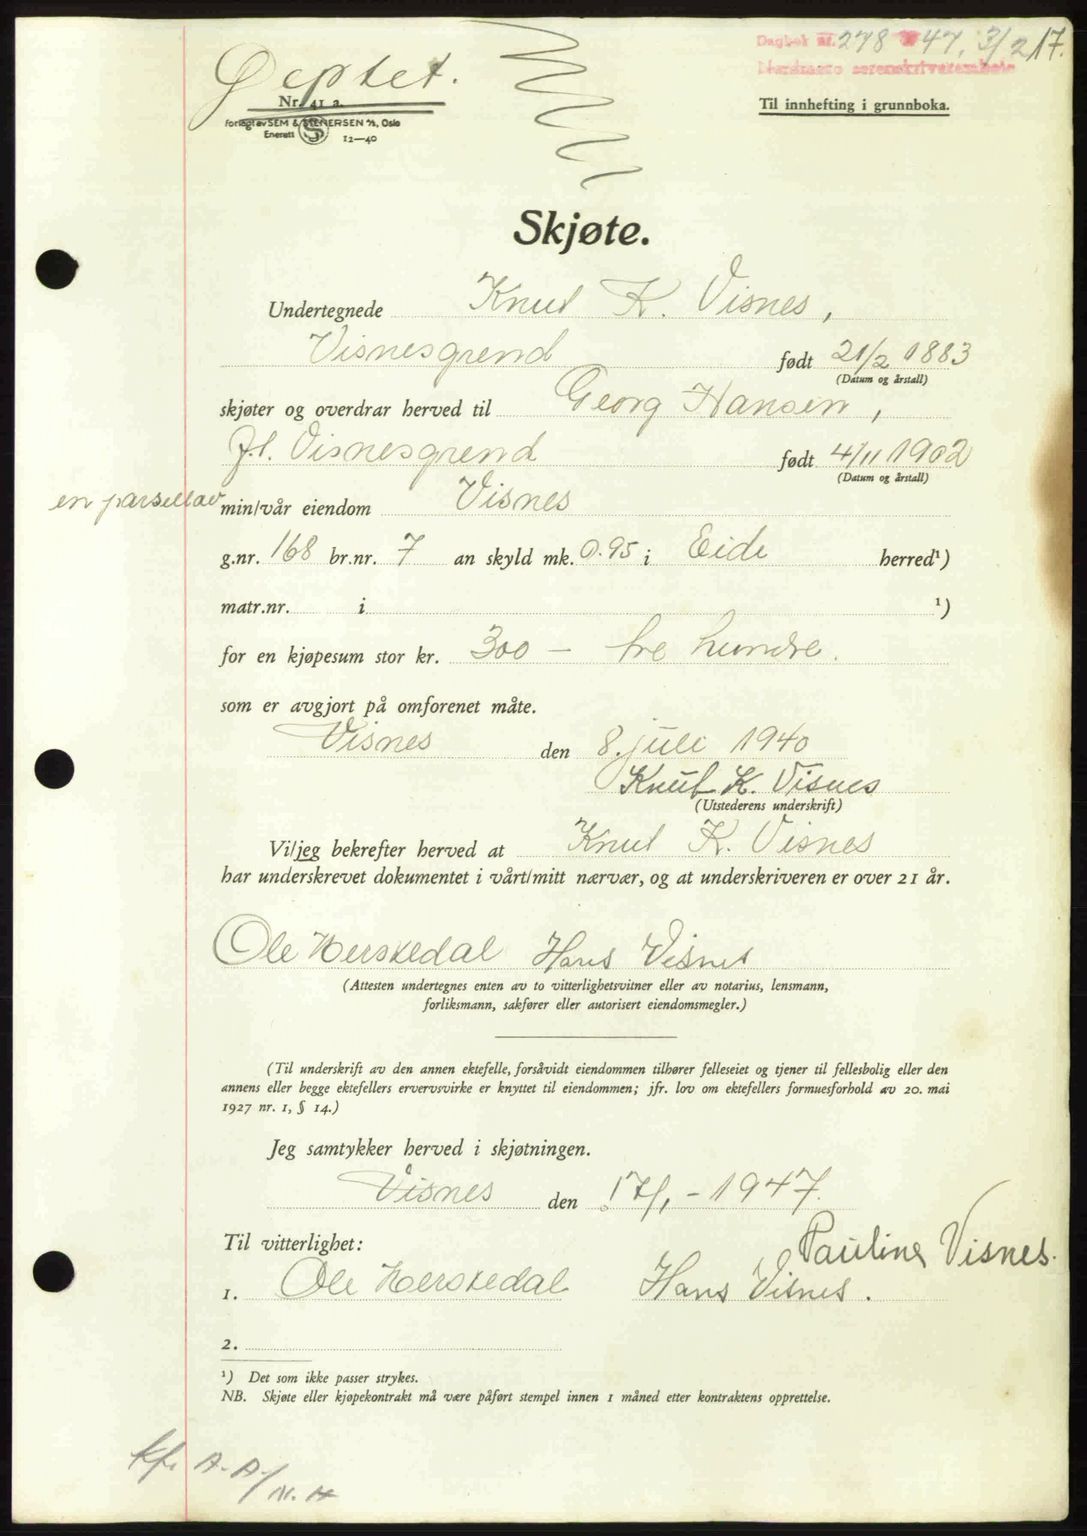 Dagbok nr. 278 47, 3/2 17.
Nordmøre sorenskriverembete
Gjenpart.
Nr. 41 a.
Forlagt av SEM & STENERSEN A/S, Oslo
Enerett S 12—40
Til innhefting i grunnboka.
Skjøte.
Undertegnede Knut K. Visnes,
Visnesgrend født 21/2 1883
(Datum og årstall)
skjøter og overdrar herved til Georg Hansen,
p.t. Visnesgrend født 4/11 1902
(Datum og årstall)
en parsell av min/vår eiendom Visnes
g.nr. 168 br.nr. 7 an skyld mk. 0.95 i Eide herred¹)
matr.nr. i ¹)
for en kjøpesum stor kr. 300 — tre hundre.
som er avgjort på omforenet måte.
Visnes den 8. juli 1940
Knut K. Visnes
(Utstederens underskrift)
Vi/jeg bekrefter herved at Knut K. Visnes
har underskrevet dokumentet i vårt/mitt nærvær, og at underskriveren er over 21 år.
Ole Herskedal Hans Visnes
(Attesten undertegnes enten av to vitterlighetsvitner eller av notarius, lensmann,
forliksmann, sakfører eller autorisert eiendomsmegler.)
(Til underskrift av den annen ektefelle, forsåvidt eiendommen tilhører felleseiet og tjener til fellesbolig eller den
annens eller begge ektefellers ervervsvirke er knyttet til eiendommen; jfr. lov om ektefellers formuesforhold av 20. mai
1927 nr. 1, § 14.)
Jeg samtykker herved i skjøtningen.
Visnes den 17/1 - 1947.
Til vitterlighet: Pauline Visnes.
1. Ole Herskedal Hans Visnes.
2.
¹) Det som ikke passer strykes.
NB. Skjøte eller kjøpekontrakt må være påført stempel innen 1 måned etter kontraktens opprettelse.
kfr A-A/N.H